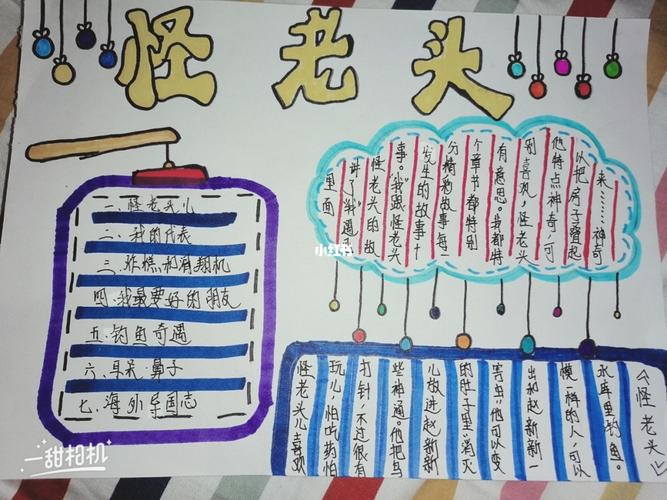 怪老头
一、怪老头儿
二、我的代表
三、炸糕和
四、我最要好的朋友
五、钓鱼奇遇
六、耳朵·鼻子
七、海外 国志
里面
讲了“我”遇
怪老头的故
事。“我”跟怪老头
发生的故事十
分精彩故事每一
个章节都特别
有意思。我都特
别喜欢，怪老头
他特点神奇，可
以把房子叠起
来……神奇
小红书
怪老头儿喜欢
玩儿，怕吃药怕
打针，不过很有
些神通。他把鸟
儿放进赵新新
的肚子里消灭
害虫，他可以变
出和赵新新一
模样的人，可以
水库里钓鱼。
《怪老头儿
一甜相机